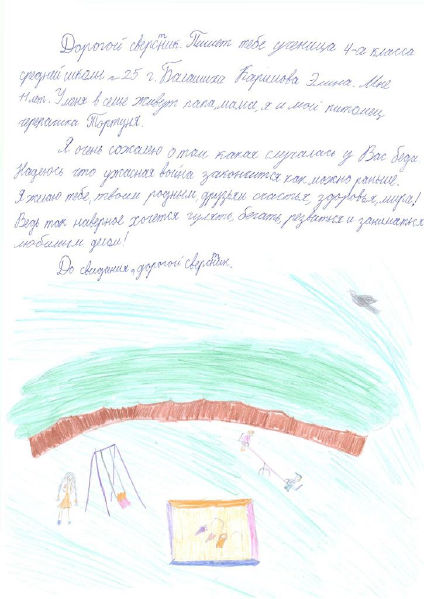 Дорогой сверстник. Пишет тебе ученица 4-а класса
средней школы №25 г. Балашиха Каримова Элина. Мне
11 лет. У меня в семье живут папа, мама, я и мой питомец
черепашка Тортуня.
Я очень сожалею о том какая случалась у Вас беда.
Надеюсь что ужасная война закончится как можно раньше.
Я желаю тебе, твоим родным, друзьям счастья, здоровья, мира!
Ведь так наверное хочется гулять, бегать, резвиться и заниматься
любимым делом!
До свидания, дорогой сверстник.